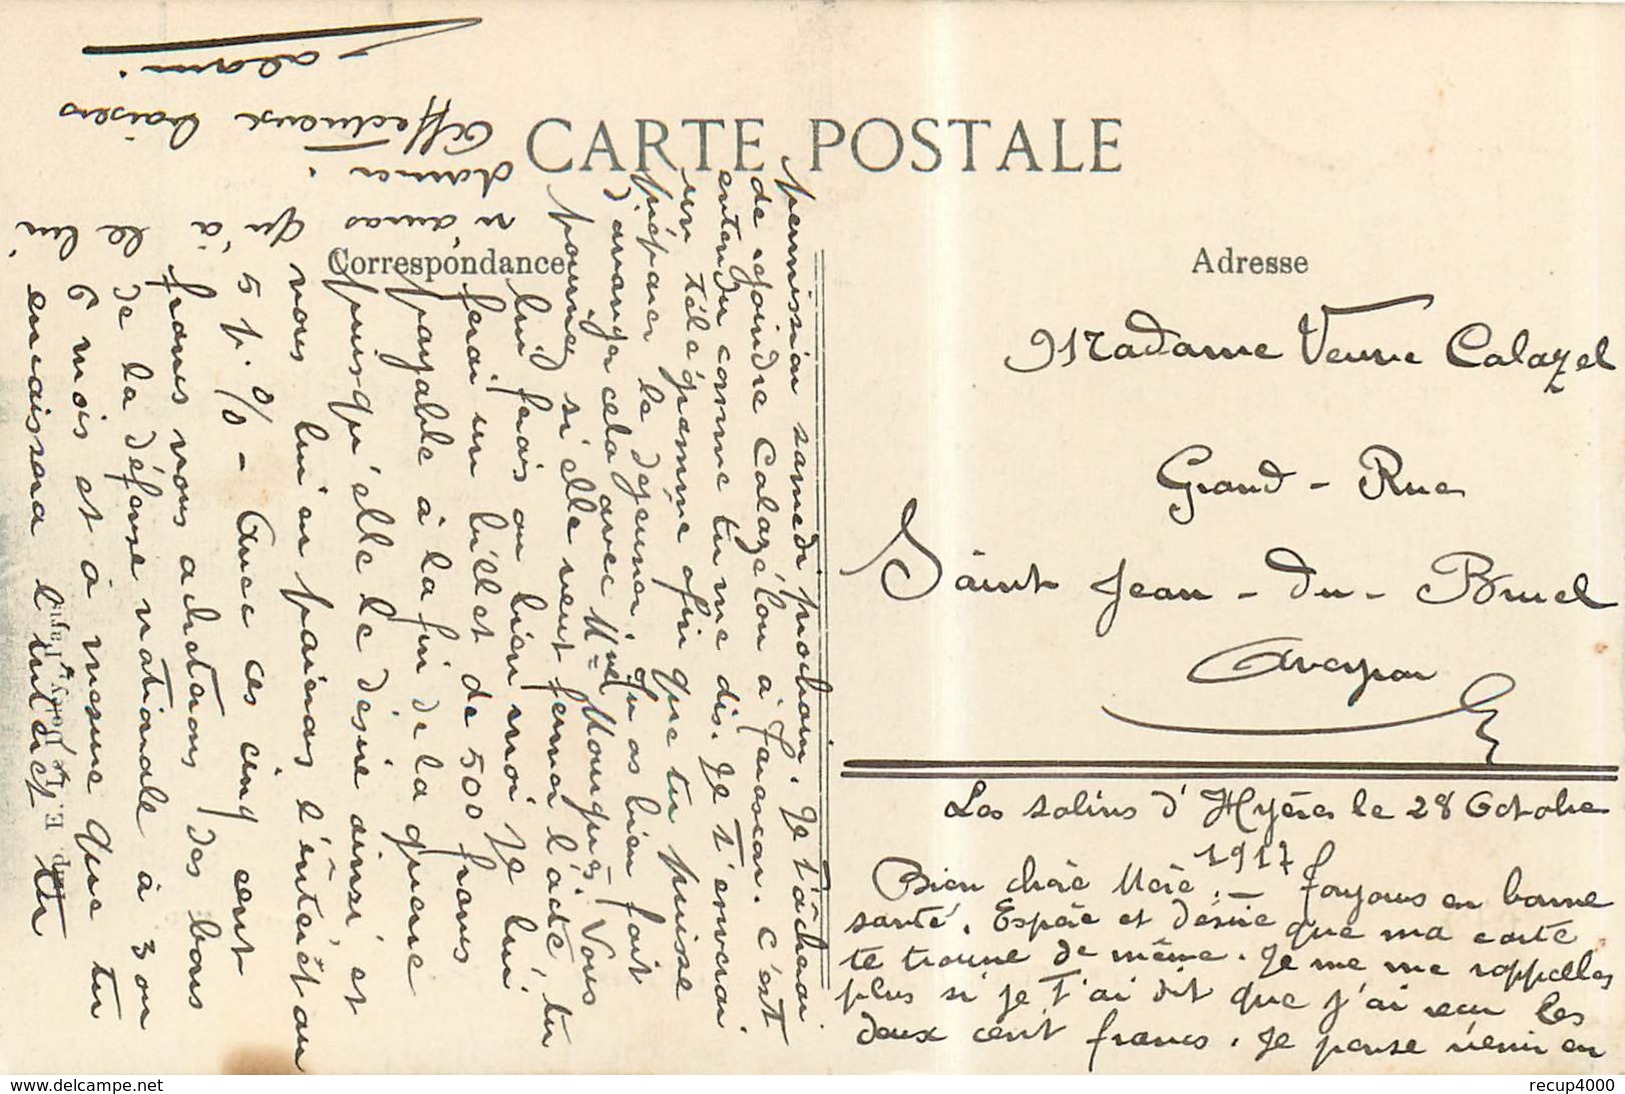 CARTE POSTALE
Correspondance
Adresse
Madame Veuve Calazel
Grand - Rue
Saint Jean - du - Bruel
Aveyron
Les salins d'Hyères le 28 Octobre
1917
Bien chère Mère. — Toujours en bonne
santé. Espère et désire que ma carte
te trouve de même. Je me me rappelles
plus si je t'ai dit que j'ai reçu les
deux cent francs. Je pense venir en
permission samedi prochain. Je tâcherai
de rejoindre Calazel ou à. C'est
entendu comme tu me dis. Je t'enverrai
un télégramme afin que tu puisse
préparer le dejeuner. Tu as bien fait
d'arranger cela avec Mme. Vous
pourrez si elle veut fermer l'acte, tu
lui ferais ou bien moi je lui
ferai un billet de 500 francs
payable à la fin de la guerre
puisqu'elle le désire ainsi, et
nous lui en paieras l'intérêt au
5 p. % - Avec ces cinq cent
francs nous achetrons des bons
de la défense nationale à 3 ou
6 mois et à mesure que tu
encaissera l'intérêt tu
le lui
qu'à
n'auras
donner.
Affectueux baisers
Imp. E. Le Deley, Paris
recup4000